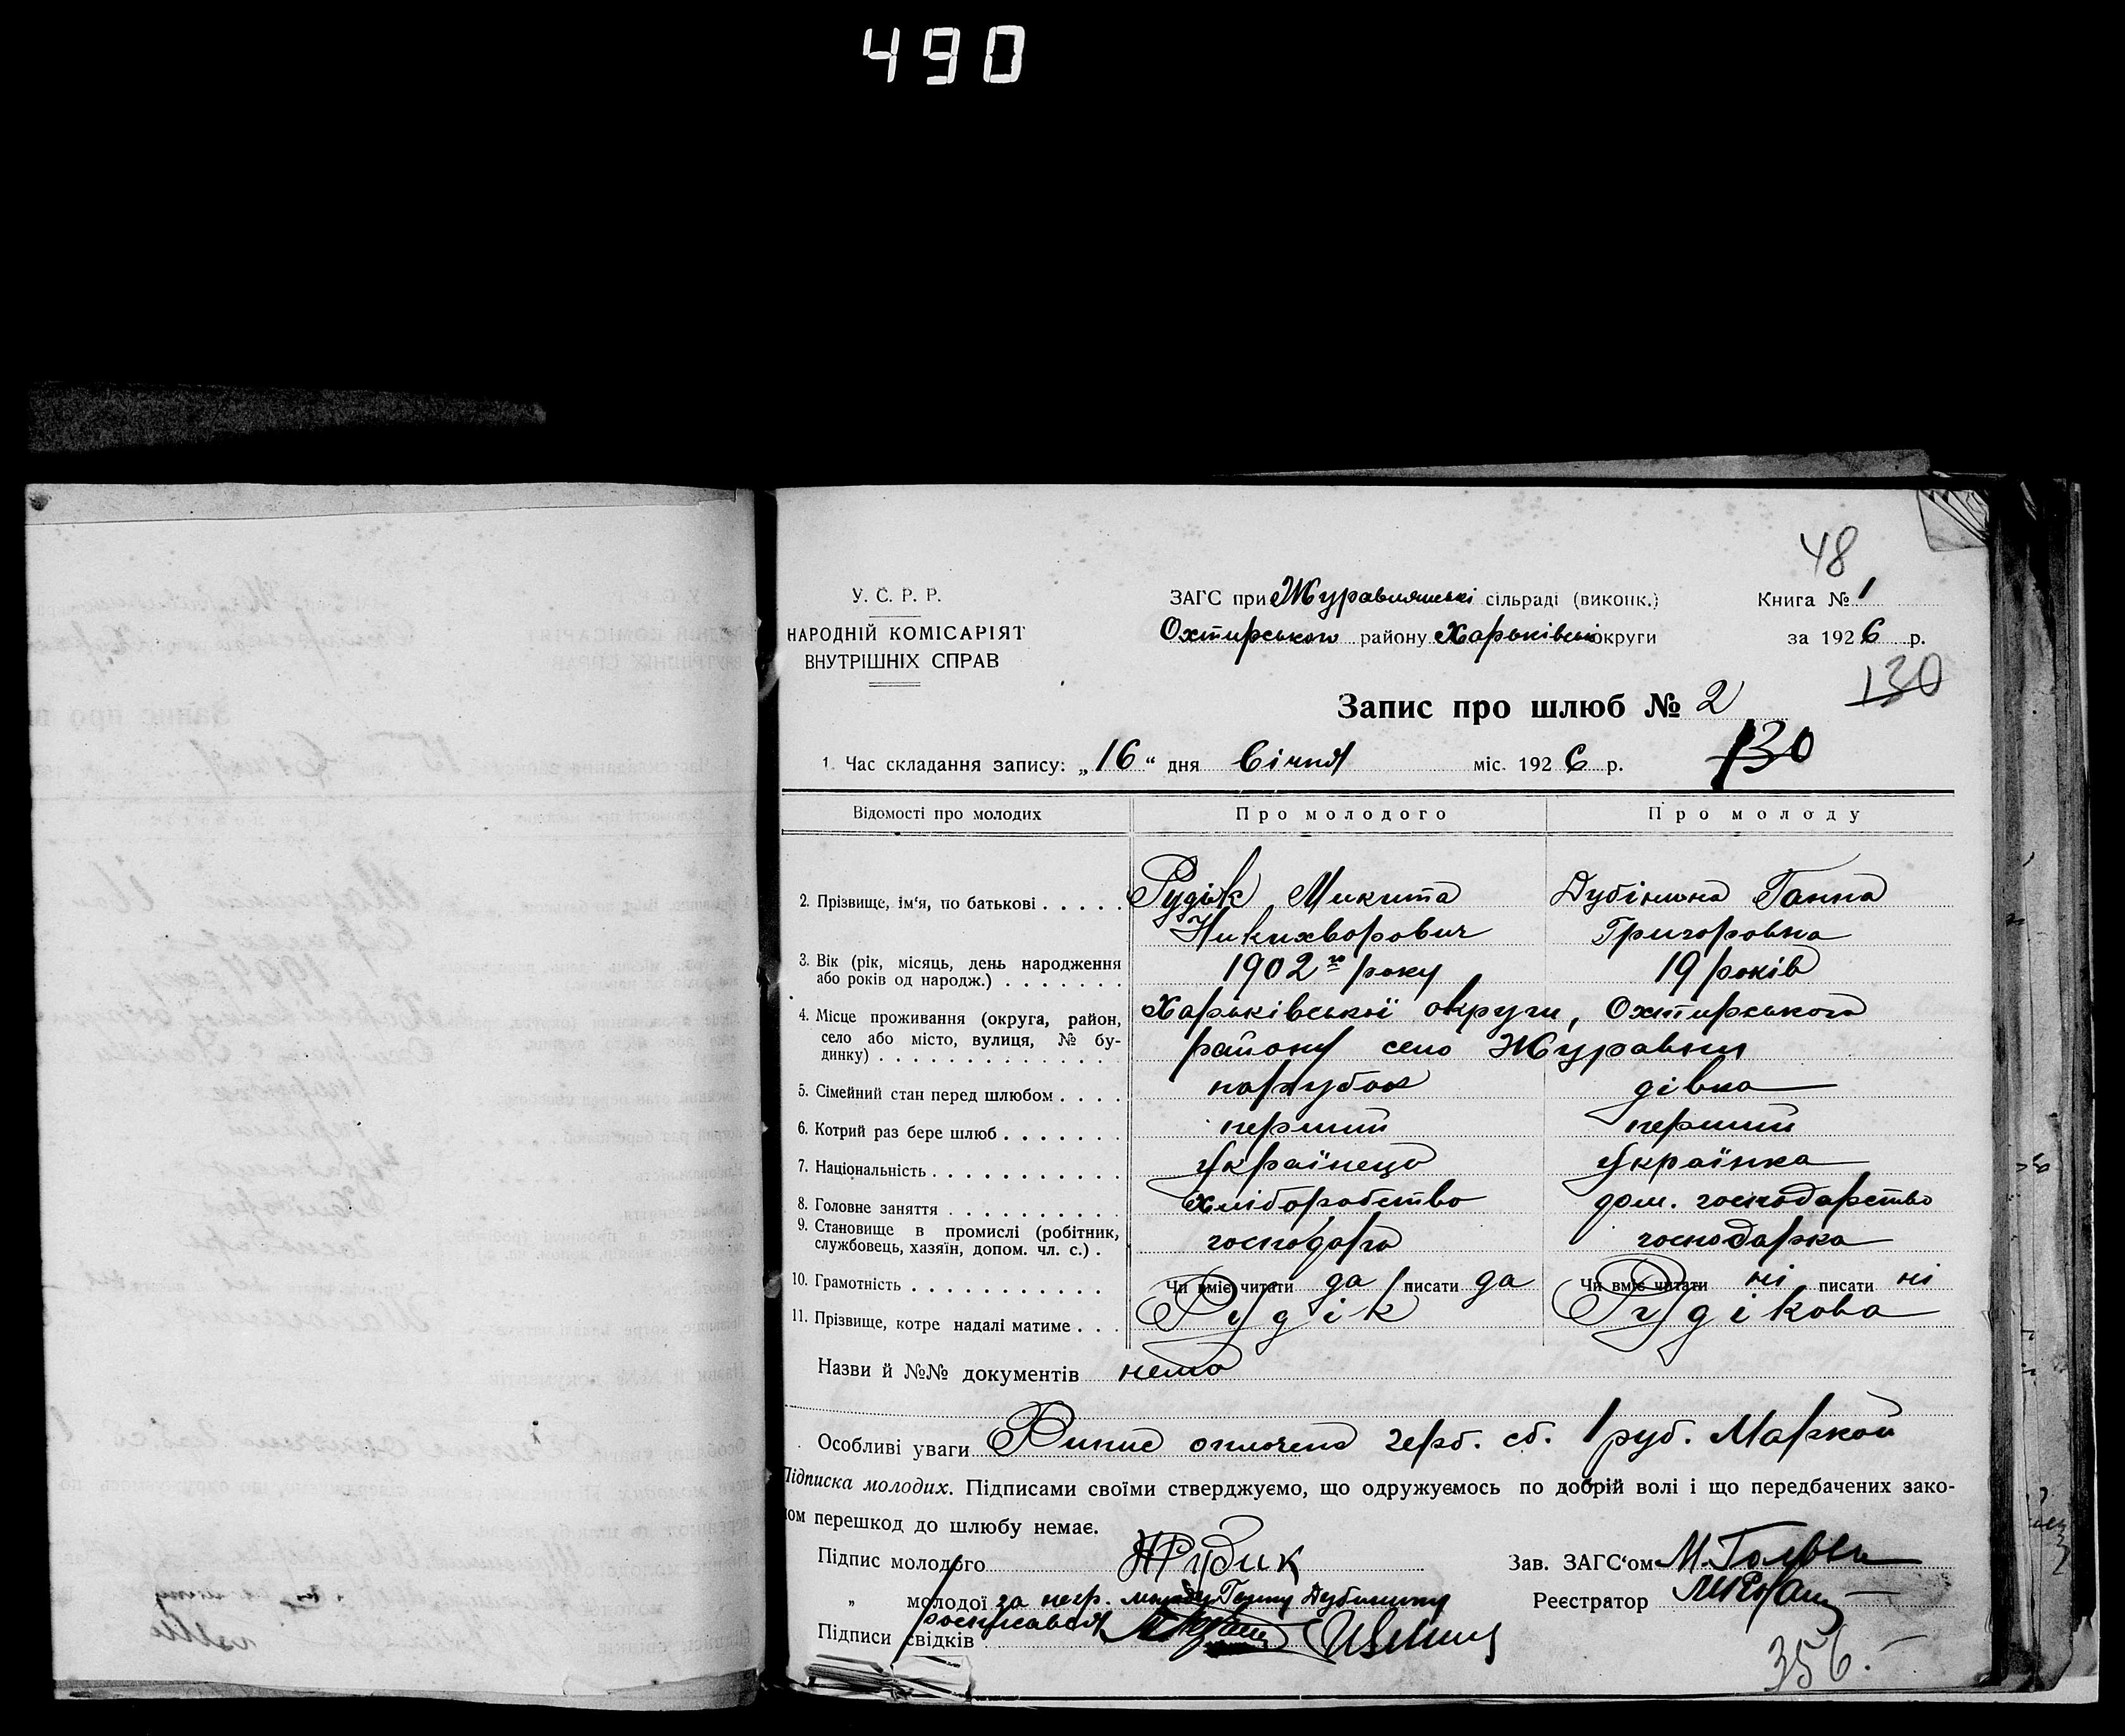 490
48
У. С. Р. Р.
НАРОДНІЙ КОМІСАРІЯТ
ВНУТРІШНІХ СПРАВ
ЗАГС при Журавлянські сільраді (виконк.)
Охтирського району Харьківської округи
Книга № 1
за 1926 р.
130
Запис про шлюб № 2
1. Час складання запису: „16“ дня Січня міс. 1926 р.
130
Відомості про молодих
Про молодого
Про молоду
2. Прізвище, ім‘я, по батькові . . . . .
Рудік Микита
Никихворович
Дубініна Ганна
Григоровна
3. Вік (рік, місяць, день народження
або років од народж.) . . . . . . .
1902го року
19 років
4. Місце проживання (округа, район,
село або місто, вулиця, № бу-
динку) . . . . . . . . . . . . . .
Харьківської округи, Охтирського
району село Журавни
5. Сімейний стан перед шлюбом . . . .
парубок
дівка
6. Котрий раз бере шлюб . . . . . . .
перший
перший
7. Національність . . . . . . . . . . .
українець
українка
8. Головне заняття . . . . . . . . . .
хліборобство
дом. господарство
9. Становище в промислі (робітник,
службовець, хазяїн, допом. чл. с.) .
господарь
господарка
10. Грамотність . . . . . . . . . . .
Чи вміє читати да писати да
Чи вміє читати ні писати ні
11. Прізвище, котре надалі матиме . . .
Рудік
Рудікова
Назви й №№ документів нема
Особливі уваги Випис оплочено герб. сб. 1 руб. Маркой
Підписка молодих. Підписами своїми стверджуємо, що одружуємось по добрій волі і що передбачених зако-
ном перешкод до шлюбу немає.
Підпис молодого НРудик
Зав. ЗАГС‘ом
„ молодої за негр. молоду Ганну Дубинину
росписався
Реєстратор
Підписи свідків
356.